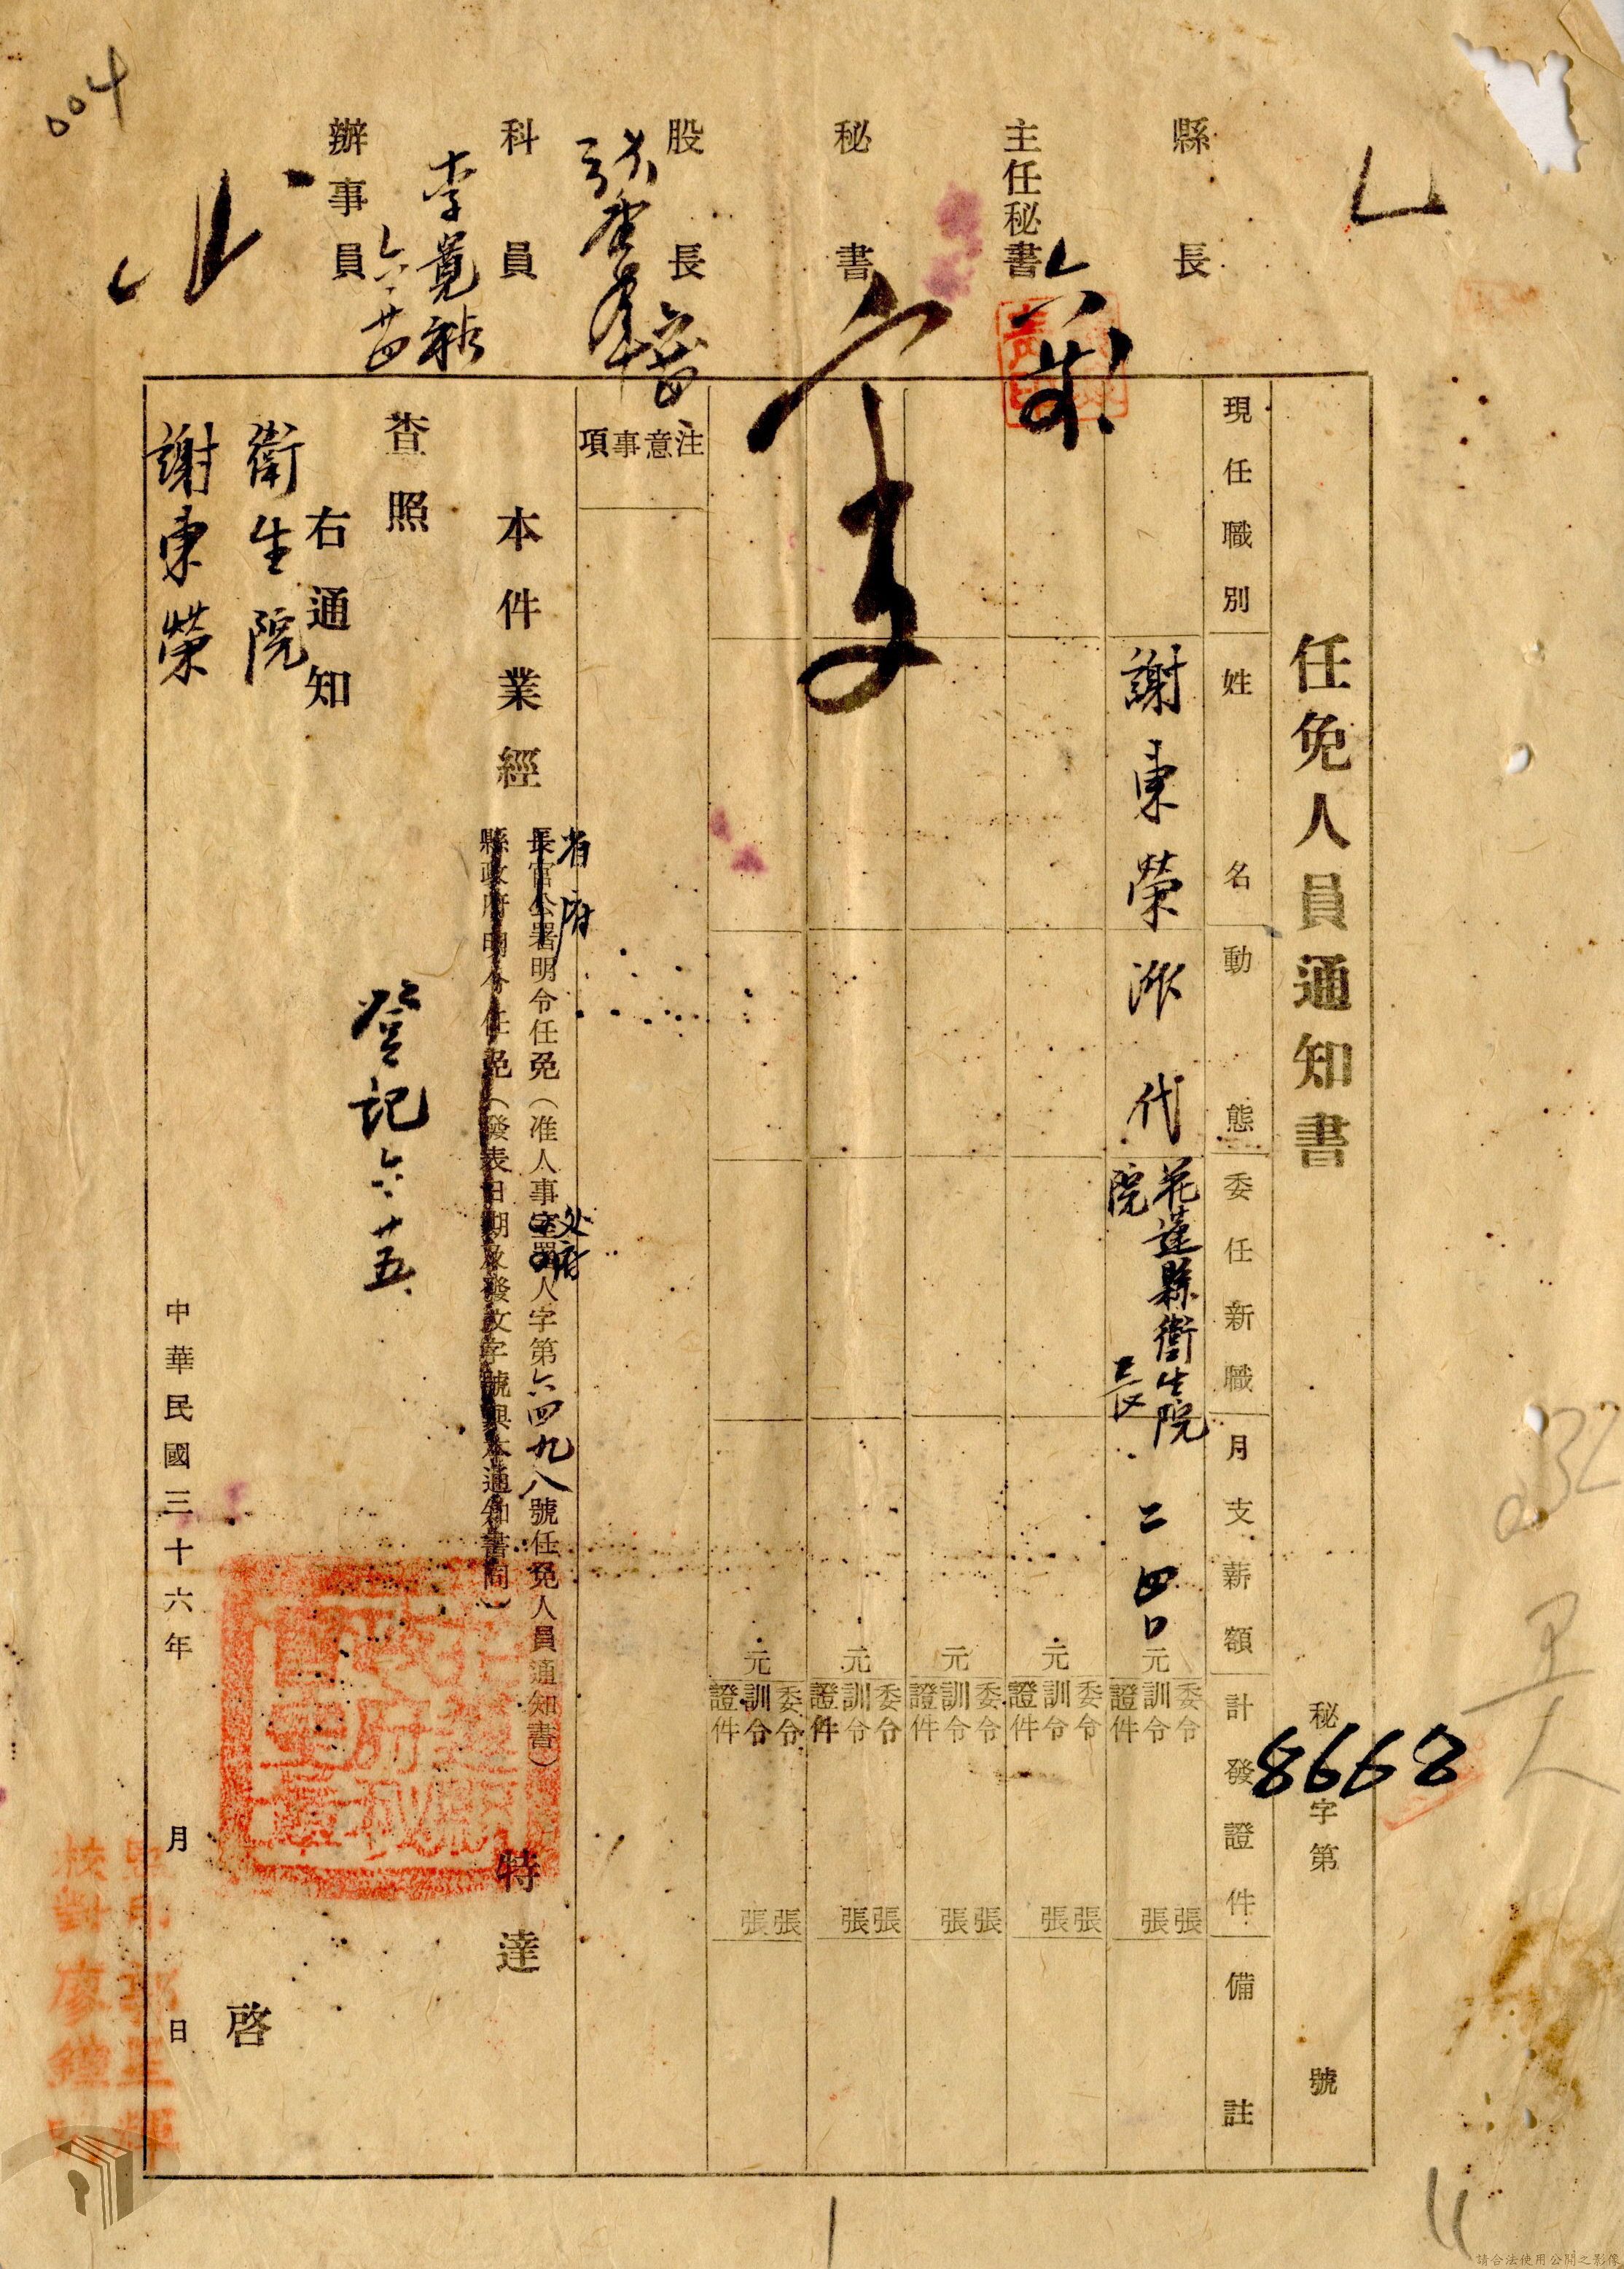 004
縣長
主任秘書
秘書
股長
科員
李寬裕
六、廿四
辦事員
任免人員通知書
秘字第號
8998
現任職別
姓名
動態
委任新職
月支薪額
計發證件
備註
謝東榮
派代
花蓮縣衛生院
院長
二四〇元
委令張
訓令張
證件
元
委令張
訓令張
證件
元
委令張
訓令張
證件
元
委令張
訓令張
證件
元
委令張
訓令張
證件
注意事項
本件業經
省府
長官公署明令任免(准人事室署人字第六四九八號任免人員通知書)
处府
縣政府明令任免(發表日期及發文字號與本通知書同)
特達
查照
登記六、廿五
右通知
衛生院
謝東榮
啓
中華民國三十六年月日
校對廖鐘
請合法使用公開之影像